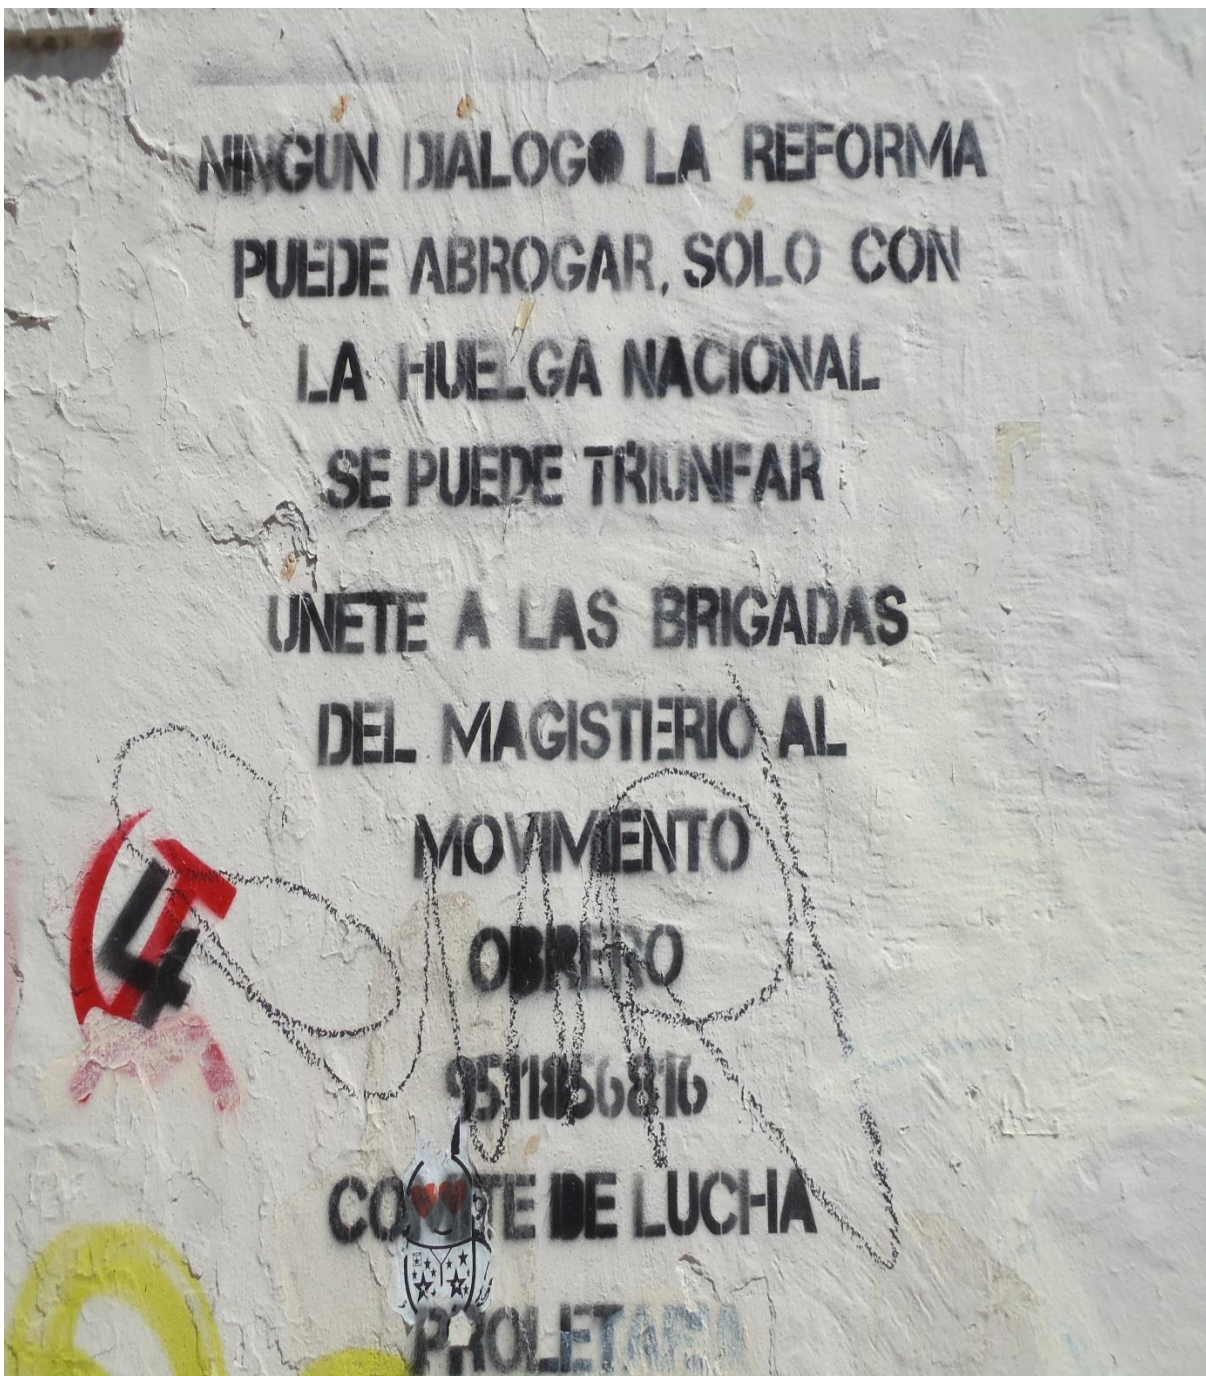 NINGÚN DIALOGO LA REFORMA
PUEDE ABROGAR, SOLO CON
LA HUELGA NACIONAL
SE PUEDE TRIUNFAR
UNETE A LAS BRIGADAS
DEL MAGISTERIO AL
MOVIMIENTO
OBRERO
4
9511856816
DE LUCHA
PROLETARIA